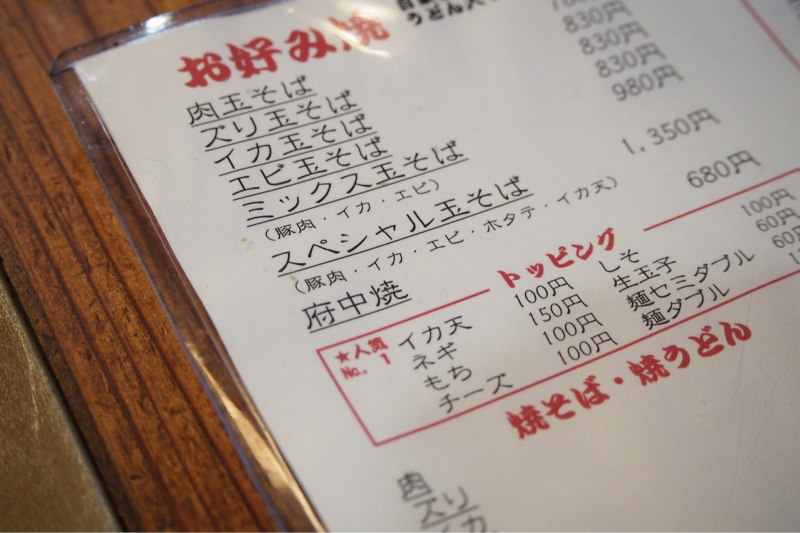 お好み焼
うどん入
肉玉そば
ズリ玉そば 830円
イカ玉そば 830円
エビ玉そば 830円
ミックス玉そば 980円
(豚肉・イカ・エビ)
スペシャル玉そば 1,350円
(豚肉・イカ・エビ・ホタテ・イカ天)
府中焼 680円
トッピング
★人気 No. 1
イカ天 100円 しそ 100円
ネギ 150円 生玉子 60円
もち 100円 麺セミダブル 60円
チーズ 100円 麺ダブル
焼そば・焼うどん
肉
ズリ
イカ